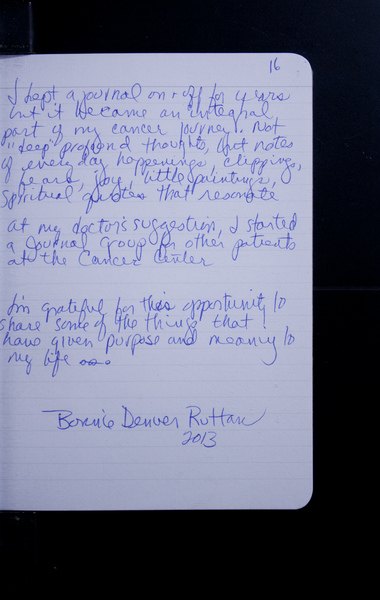 16
I kept a journal on + off for years
but it became an integral
part of my cancer journey. Not
"deep" profound thoughts, but notes
of everyday happenings, clippings,
tears, joy, little paintings,
spiritual quotes that resonate
at my doctor's suggestion, I started
a Journal Group for other patients
at the Cancer Center
I'm grateful for this opportunity to
share some of the things that
have given purpose and meaning to
my life ...
Bonnie Denver Ruttan
2013